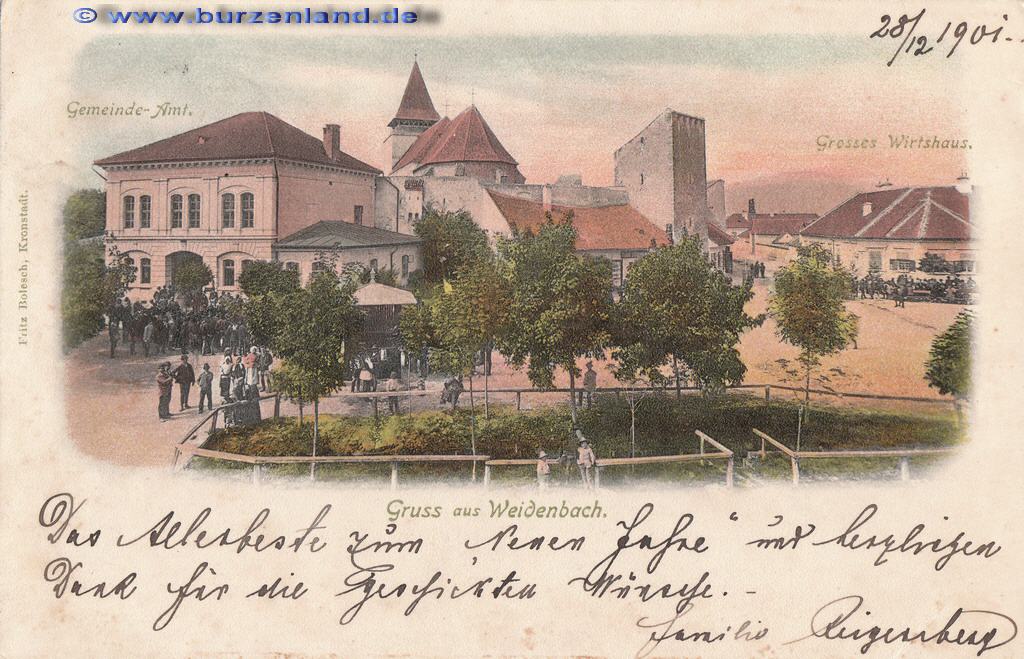 © www.burzenland.de
28/12 1901.
Gemeinde-Amt.
Grosses Wirtshaus.
Fritz Bolesch, Kronstadt.
Gruss aus Weidenbach.
Das Allerbeste zum Neuen Jahre und herzlichen
Dank für die geschickten Wünsche.-
Familie